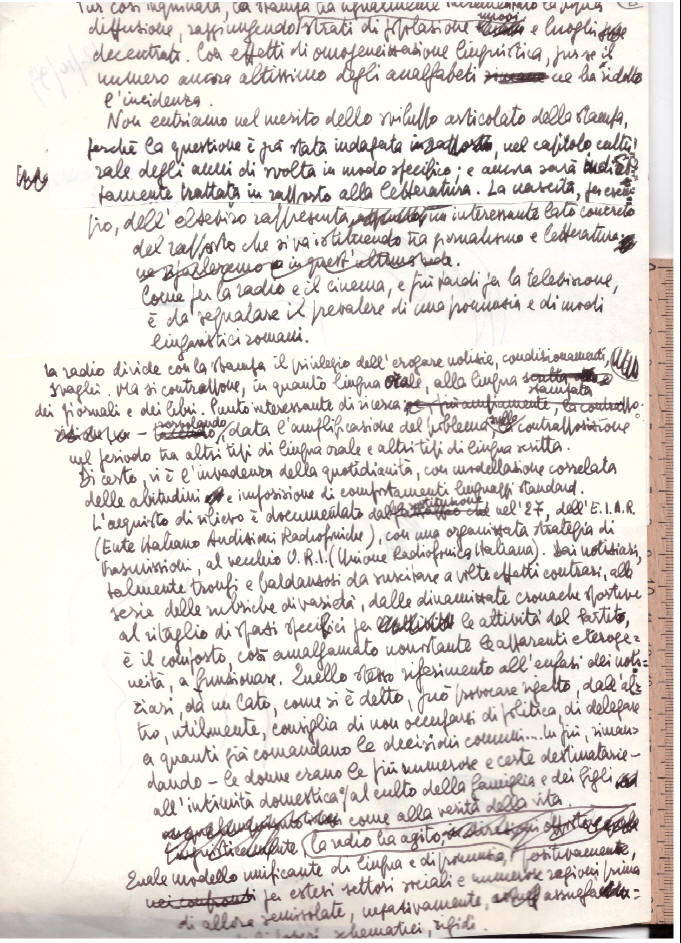 Pur così inquinata, la stampa ha ugualmente incrementato la propria
diffusione, raggiungendo strati di popolazione nuovi e luoghi
decentrati. Con effetti di omogeneizzazione linguistica, pur se il
numero ancora altissimo degli analfabeti ne ha ridotto
l'incidenza.
Non entriamo nel merito dello sviluppo articolato della stampa,
perché la questione è già stata indagata nel capitolo cultu-
rale degli anni di svolta in modo specifico; e ancora sarà indiret-
tamente trattata in rapporto alla letteratura. La nascita, per esem-
pio, dell'elzeviro rappresenta un interessante lato concreto
del rapporto che si va istituendo tra giornalismo e letteratura.
Come per la radio e il cinema, e più tardi per la televisione,
è da segnalare il prevalere di una pronunzia e di modi
linguistici romani.
La radio divide con la stampa il privilegio dell'erogare notizie, condizionamenti,
svaghi. Ma si contrappone, in quanto lingua orale, alla lingua stampata
dei giornali e dei libri. Punto interessante di ricerca
, data l'amplificazione del problema, sulla contrapposizione
nel periodo tra altri tipi di lingua orale e altri tipi di lingua scritta.
Di certo, vi è l'invadenza della quotidianità, con modellazione correlata
delle abitudini e imposizione di comportamenti linguaggi standard.
L'acquisto di rilievo è documentato dalla sostituzione nel '27, dell'E.I.A.R.
(Ente Italiano Audizioni Radiofoniche), con una organizzata strategia di
trasmissioni, al vecchio U.R.I. (Unione Radiofonica Italiana). Dai notiziari,
talmente tronfi e baldanzosi da suscitare a volte effetti contrari, alla
serie delle rubriche di varietà, dalle dinamizzate cronache sportive
al ritaglio di spazi specifici per le attività del Partito,
è il composto, così amalgamato nonostante le apparenti eteroge-
neità, a funzionare. Quello stesso riferimento all'enfasi dei noti-
ziari, da un lato, come si è detto, può provocare rigetto, dall'al-
tro, utilmente, consiglia di non occuparsi di politica, di delegare
a quanti già comandano le decisioni comuni... In più, riman-
dando – le donne erano le più numerose e certe destinatarie –
all'intimità domestica, al culto della famiglia e dei figli
come alla verità della vita.
la radio ha agito,
Quale modello unificante di lingua e di pronunzia, positivamente,
per estesi settori sociali e numerose ragioni prima
di allora semisolate, negativamente,
schematici, rigidi.